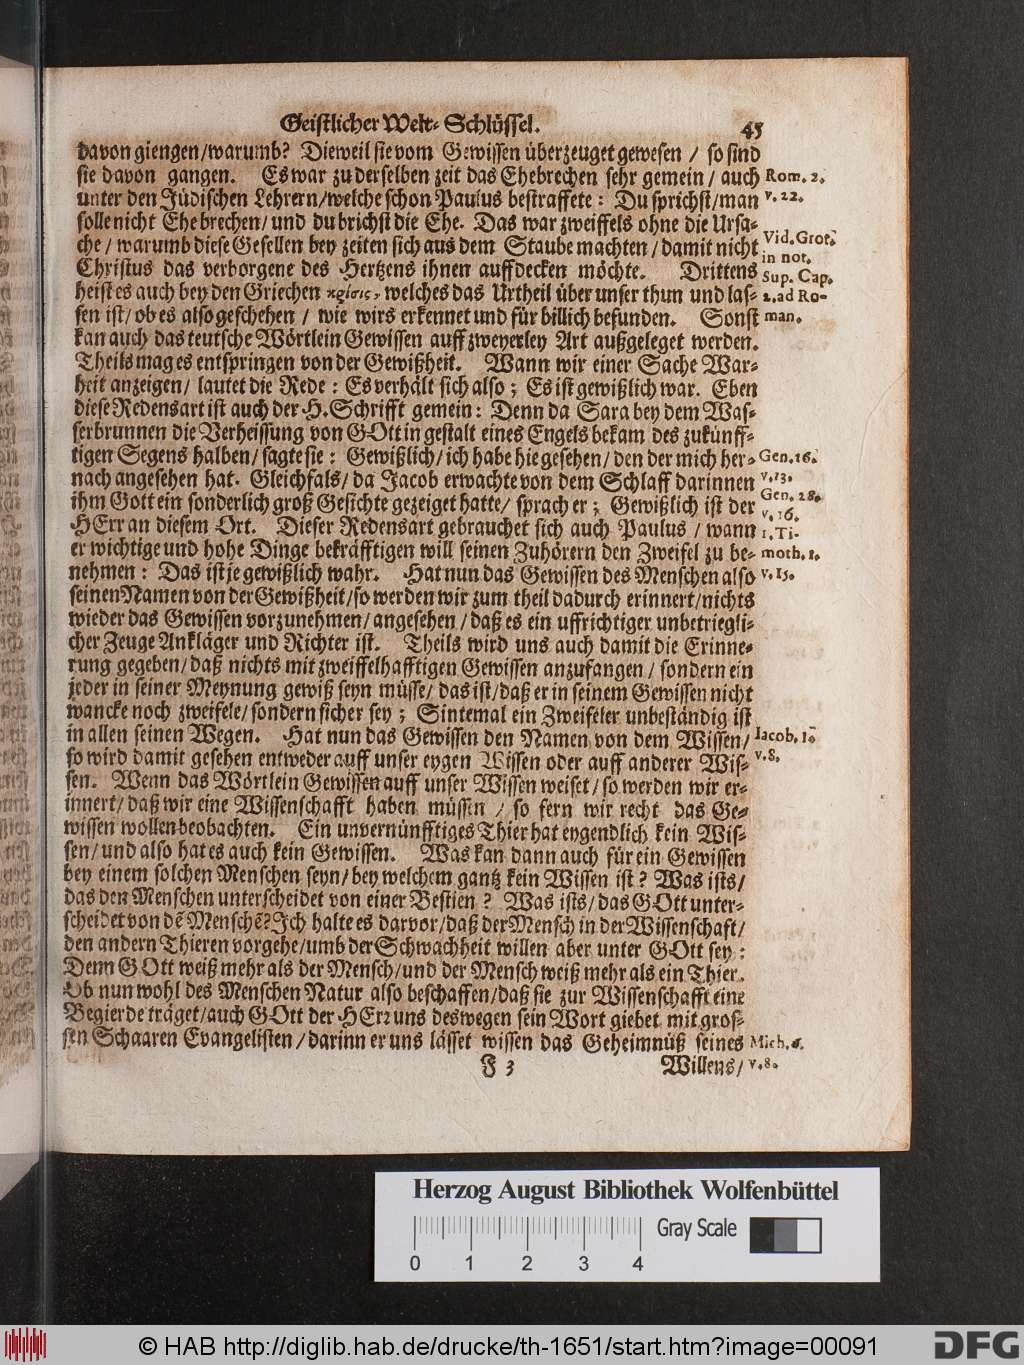 Geistlicher Welt-Schlüssel. 45
davon giengen/warumb? Dieweil sie vom Gewissen überzeuget gewesen / so sind
sie davon gangen. Es war zu derselben zeit das Ehebrechen sehr gemein / auch
Rom. 2.
unter den Jüdischen Lehrern/welche schon Paulus bestraffete: Du sprichst/man
v. 22.
solle nicht Ehebrechen/und du brichst die Ehe. Das war zweiffels ohne die Ursa-
che / warumb diese Gesellen bey zeiten sich aus dem Staube machten / damit nicht
Vid. Grot.
in not.
Christus das verborgene des Hertzens ihnen auffdecken möchte. Drittens
Sup. Cap.
heist es auch bey den Griechen κρίσις, welches das Urtheil über unser thun und las-
2. ad Ro-
sen ist/ob es also geschehen / wie wirs erkennet und für billich befunden. Sonst
man.
kan auch das teutsche Wörtlein Gewissen auff zweyerley Art außgeleget werden.
Theils mag es entspringen von der Gewißheit. Wann wir einer Sache War-
heit anzeigen/ lautet die Rede: Es verhält sich also; Es ist gewißlich war. Eben
diese Redensart ist auch der H. Schrifft gemein: Denn da Sara bey dem Was-
serbrunnen die Verheissung von GOtt in gestalt eines Engels bekam des zukünff-
tigen Segens halben/ sagte sie: Gewißlich/ich habe hie gesehen/den der mich her-
Gen. 16.
nach angesehen hat. Gleichfals/ da Jacob erwachte von dem Schlaff darinnen
v. 13.
ihm Gott ein sonderlich groß Gesichte gezeiget hatte/ sprach er; Gewißlich ist der
Gen. 28.
v. 16.
HErr an diesem Ort. Dieser Redensart gebrauchet sich auch Paulus / wann
1. Ti-
er wichtige und hohe Dinge bekräfftigen will seinen Zuhörern den Zweifel zu be-
moth. 1.
nehmen: Das ist je gewißlich wahr. Hat nun das Gewissen des Menschen also
v. 15.
seinen Namen von der Gewißheit/so werden wir zum theil dadurch erinnert/nichts
wieder das Gewissen vorzunehmen/angesehen/daß es ein uffrichtiger unbetriegli-
cher Zeuge Ankläger und Richter ist. Theils wird uns auch damit die Erinne-
rung gegeben/daß nichts mit zweiffelhafftigen Gewissen anzufangen / sondern ein
jeder in seiner Meynung gewiß seyn müsse/ das ist/daß er in seinem Gewissen nicht
wancke noch zweifele/sondern sicher sey; Sintemal ein Zweifeler unbeständig ist
in allen seinen Wegen. Hat nun das Gewissen den Namen von dem Wissen/
Iacob. 1.
so wird damit gesehen entweder auff unser eygen Wissen oder auff anderer Wis-
v. 8.
sen. Wenn das Wörtlein Gewissen auff unser Wissen weiset/so werden wir er-
innert/daß wir eine Wissenschafft haben müssen / so fern wir recht das Ge-
wissen wollen beobachten. Ein unvernünfftiges Thier hat eygendlich kein Wis-
sen/und also hat es auch kein Gewissen. Was kan dann auch für ein Gewissen
bey einem solchen Menschen seyn/bey welchem gantz kein Wissen ist? Was ists/
das den Menschen unterscheidet von einer Bestien? Was ists/das GOtt unter-
scheidet von dē Menschē? Ich halte es darvor/daß der Mensch in der Wissenschaft/
den andern Thieren vorgehe/umb der Schwachheit willen aber unter GOtt sey:
Denn GOtt weiß mehr als der Mensch/und der Mensch weiß mehr als ein Thier.
Ob nun wohl des Menschen Natur also beschaffen/daß sie zur Wissenschafft eine
Begierde träget/auch GOtt der HErr uns deswegen sein Wort giebet mit gros-
sen Schaaren Evangelisten/darinn er uns lässet wissen das Geheimnüß seines
Mich. 6.
J 3 Willens/
v. 8.
Herzog August Bibliothek Wolfenbüttel
Gray Scale
0 1 2 3 4
© HAB http://diglib.hab.de/drucke/th-1651/start.htm?image=00091
DFG